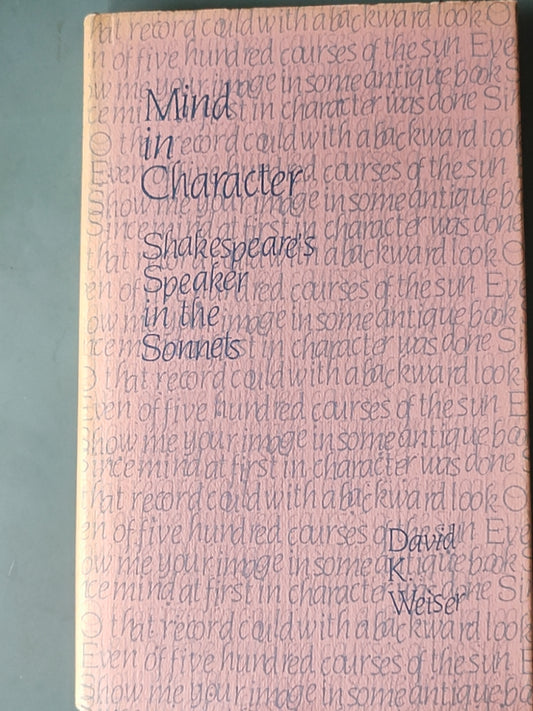 hat record could with a backward look O
n of five hundred courses of the sun Eve
ow me your image in some antique book S
Mind
ce mind at first in character was done Sin
in
O that record could with a backward look
Even of five hundred courses of the sun
Character
Show me your image in some antique bo
Since mind at first in character was done
Shakespeare's
that record could with a backward look O
Speaker
en of five hundred courses of the sun Eve
in the
ow me your image in some antique book S
Sonnets
nce mind at first in character was done Si
O that record could with a backward look
Even of five hundred courses of the sun E
Show me your image in some antique boo
Since mind at first in character was done S
that record could with a backward look O
en of five hundred courses of the sun Eve
David
ow me your image in some antique book S
K.
ce mind at first in character was done Sin
Weiser
O that record could with a backward look
Even of five hundred courses of the sun E
Show me your image in some antique boo